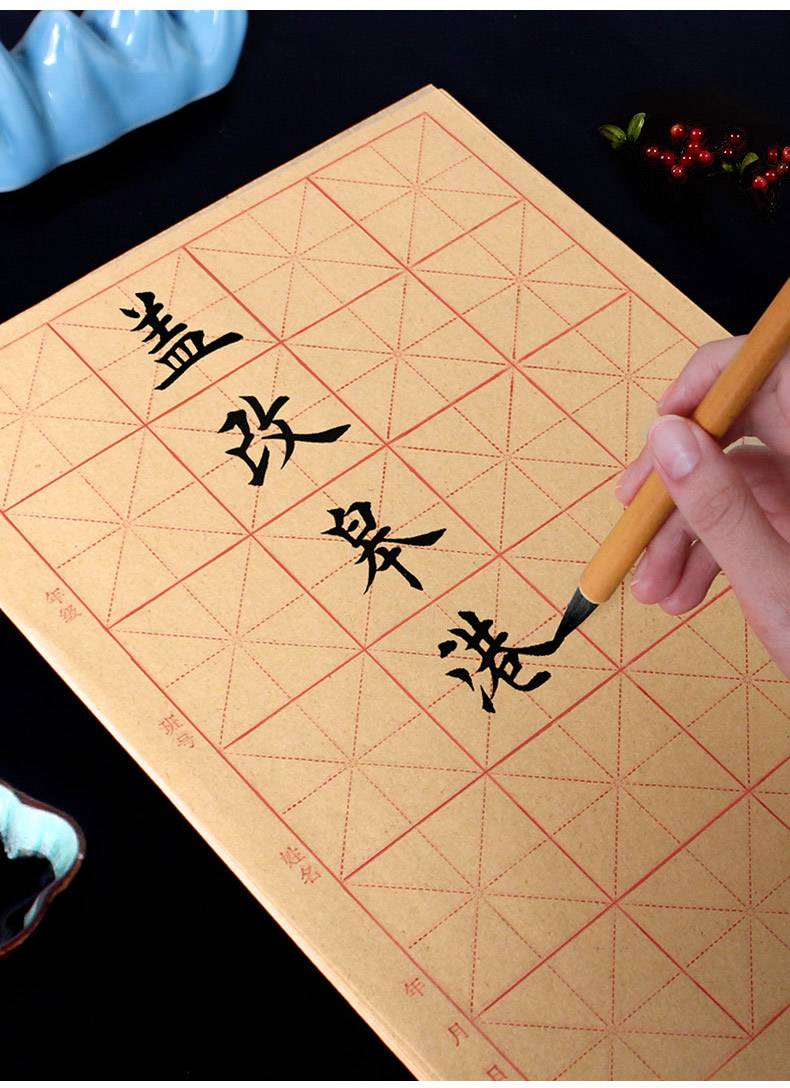 盖改皋港
年级
班号
姓名
年月日